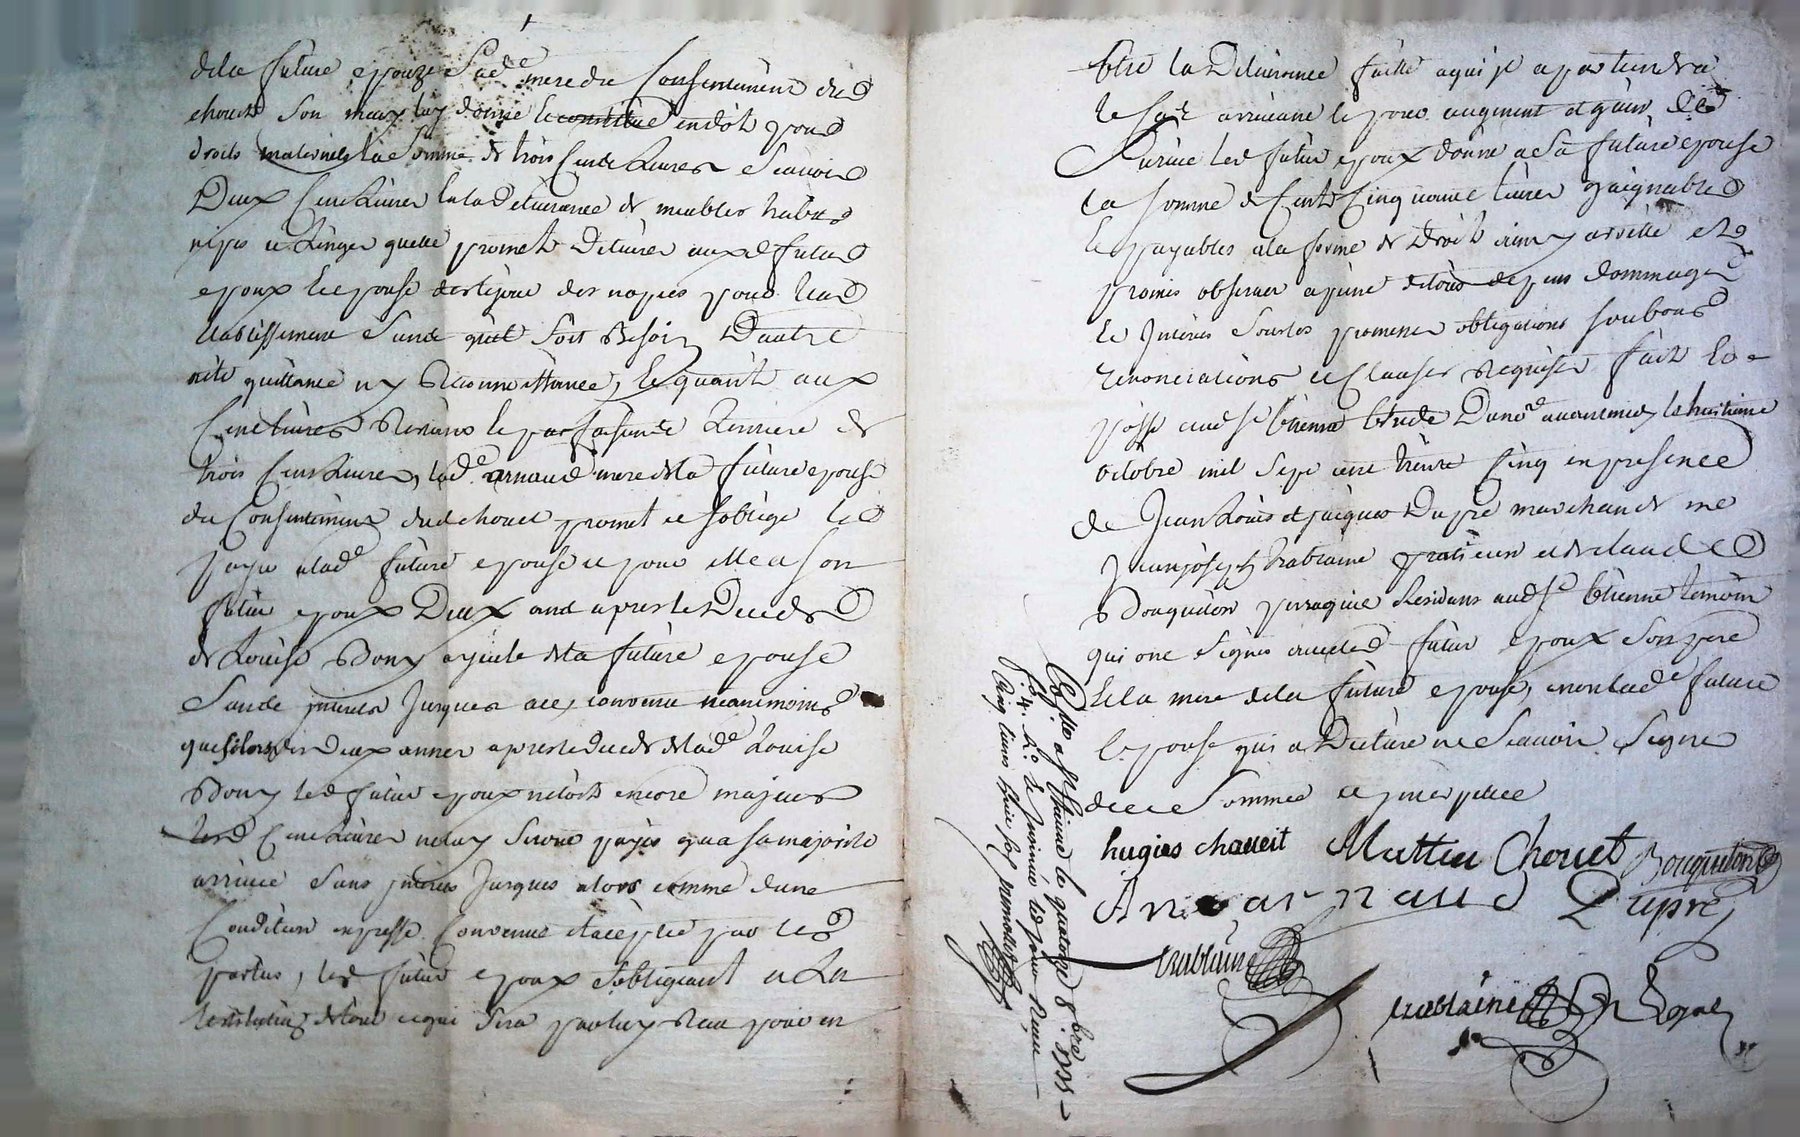 dela future epouze Sad.e mere du Consentement dud
chouet Son mary luy donne le constitue en dot pour
droits maternels la Somme de trois Cent Livres Scavoir
Deux Cent Livres en la delivrance de meubles habits
nipes et Linges quelle promet delivrer auxd futurs
epoux Et epouse des le jour des nopces pour leur
Etablissement Sans quil Soit Besoin Dautre
quittance ny Reconnoissance, Et quant aux
Cent livres Restans le parfaisant Lentiere de
trois Cent Livres, lad.e arnaud mere de la future epouse
du Consentement dud chouet promet et Soblige les
payer alad.e future epouse et pour elle a Son
futur epoux Deux ans apres le Deceds
de Louise Bony ayeule de la future epouse
Sans interes Jusques alors convenu neanmoins
que si lors des Deux annes apres le deceds de lad.e Louise
Bony led futur epoux netoit encore majeur
lesd Cent Livres ne luy Seront payés qua Sa majorité
arrivée Sans interes Jusques alors comme dune
Condition expresse Convenue et acceptée par les
parties, led futur epoux Sobligeant a La
restitution de tout ce qui Sera par luy Receu pour en
Etre la Delivrance faitte a qui il apartiendra
le Cas arrivant et pour augment et gain de
Survie led futur epoux donne a Sa future epouse
la Somme de Cent Cinquante livres gaignables
Et payables a la forme de Droit ainsy arreté et
promis observer a peine de tous depens dommages
Et Interes Sous les promesses obligations Soubmis
renonciations et Clauses Requises fait Et
passé aud St Etienne Etude Du no.re avant midy le huitieme
octobre mil Sept cent trente Cinq en presence
de Jean Louis et jacques Dupré marchands me
Jean joseph trablaine praticien et de claude
Bouquiton perruquier Residans aud St Etienne temoins
qui ont Signés avec led futur epoux Son pere
Et la mere dela future epouse, non lad.e future
Epouse qui a Declaré ne Scavoir Signer
de ce Sommée et interpellée
hugues chaueit Mattieu Chouet Bouquiton
Ane arnaud Dupré
trablaine
trablaine
Con.lle a St Etienne le quatorze 8.bre 1735
f.o 34. R.o de linsinué led jour Receu
Cinq livres